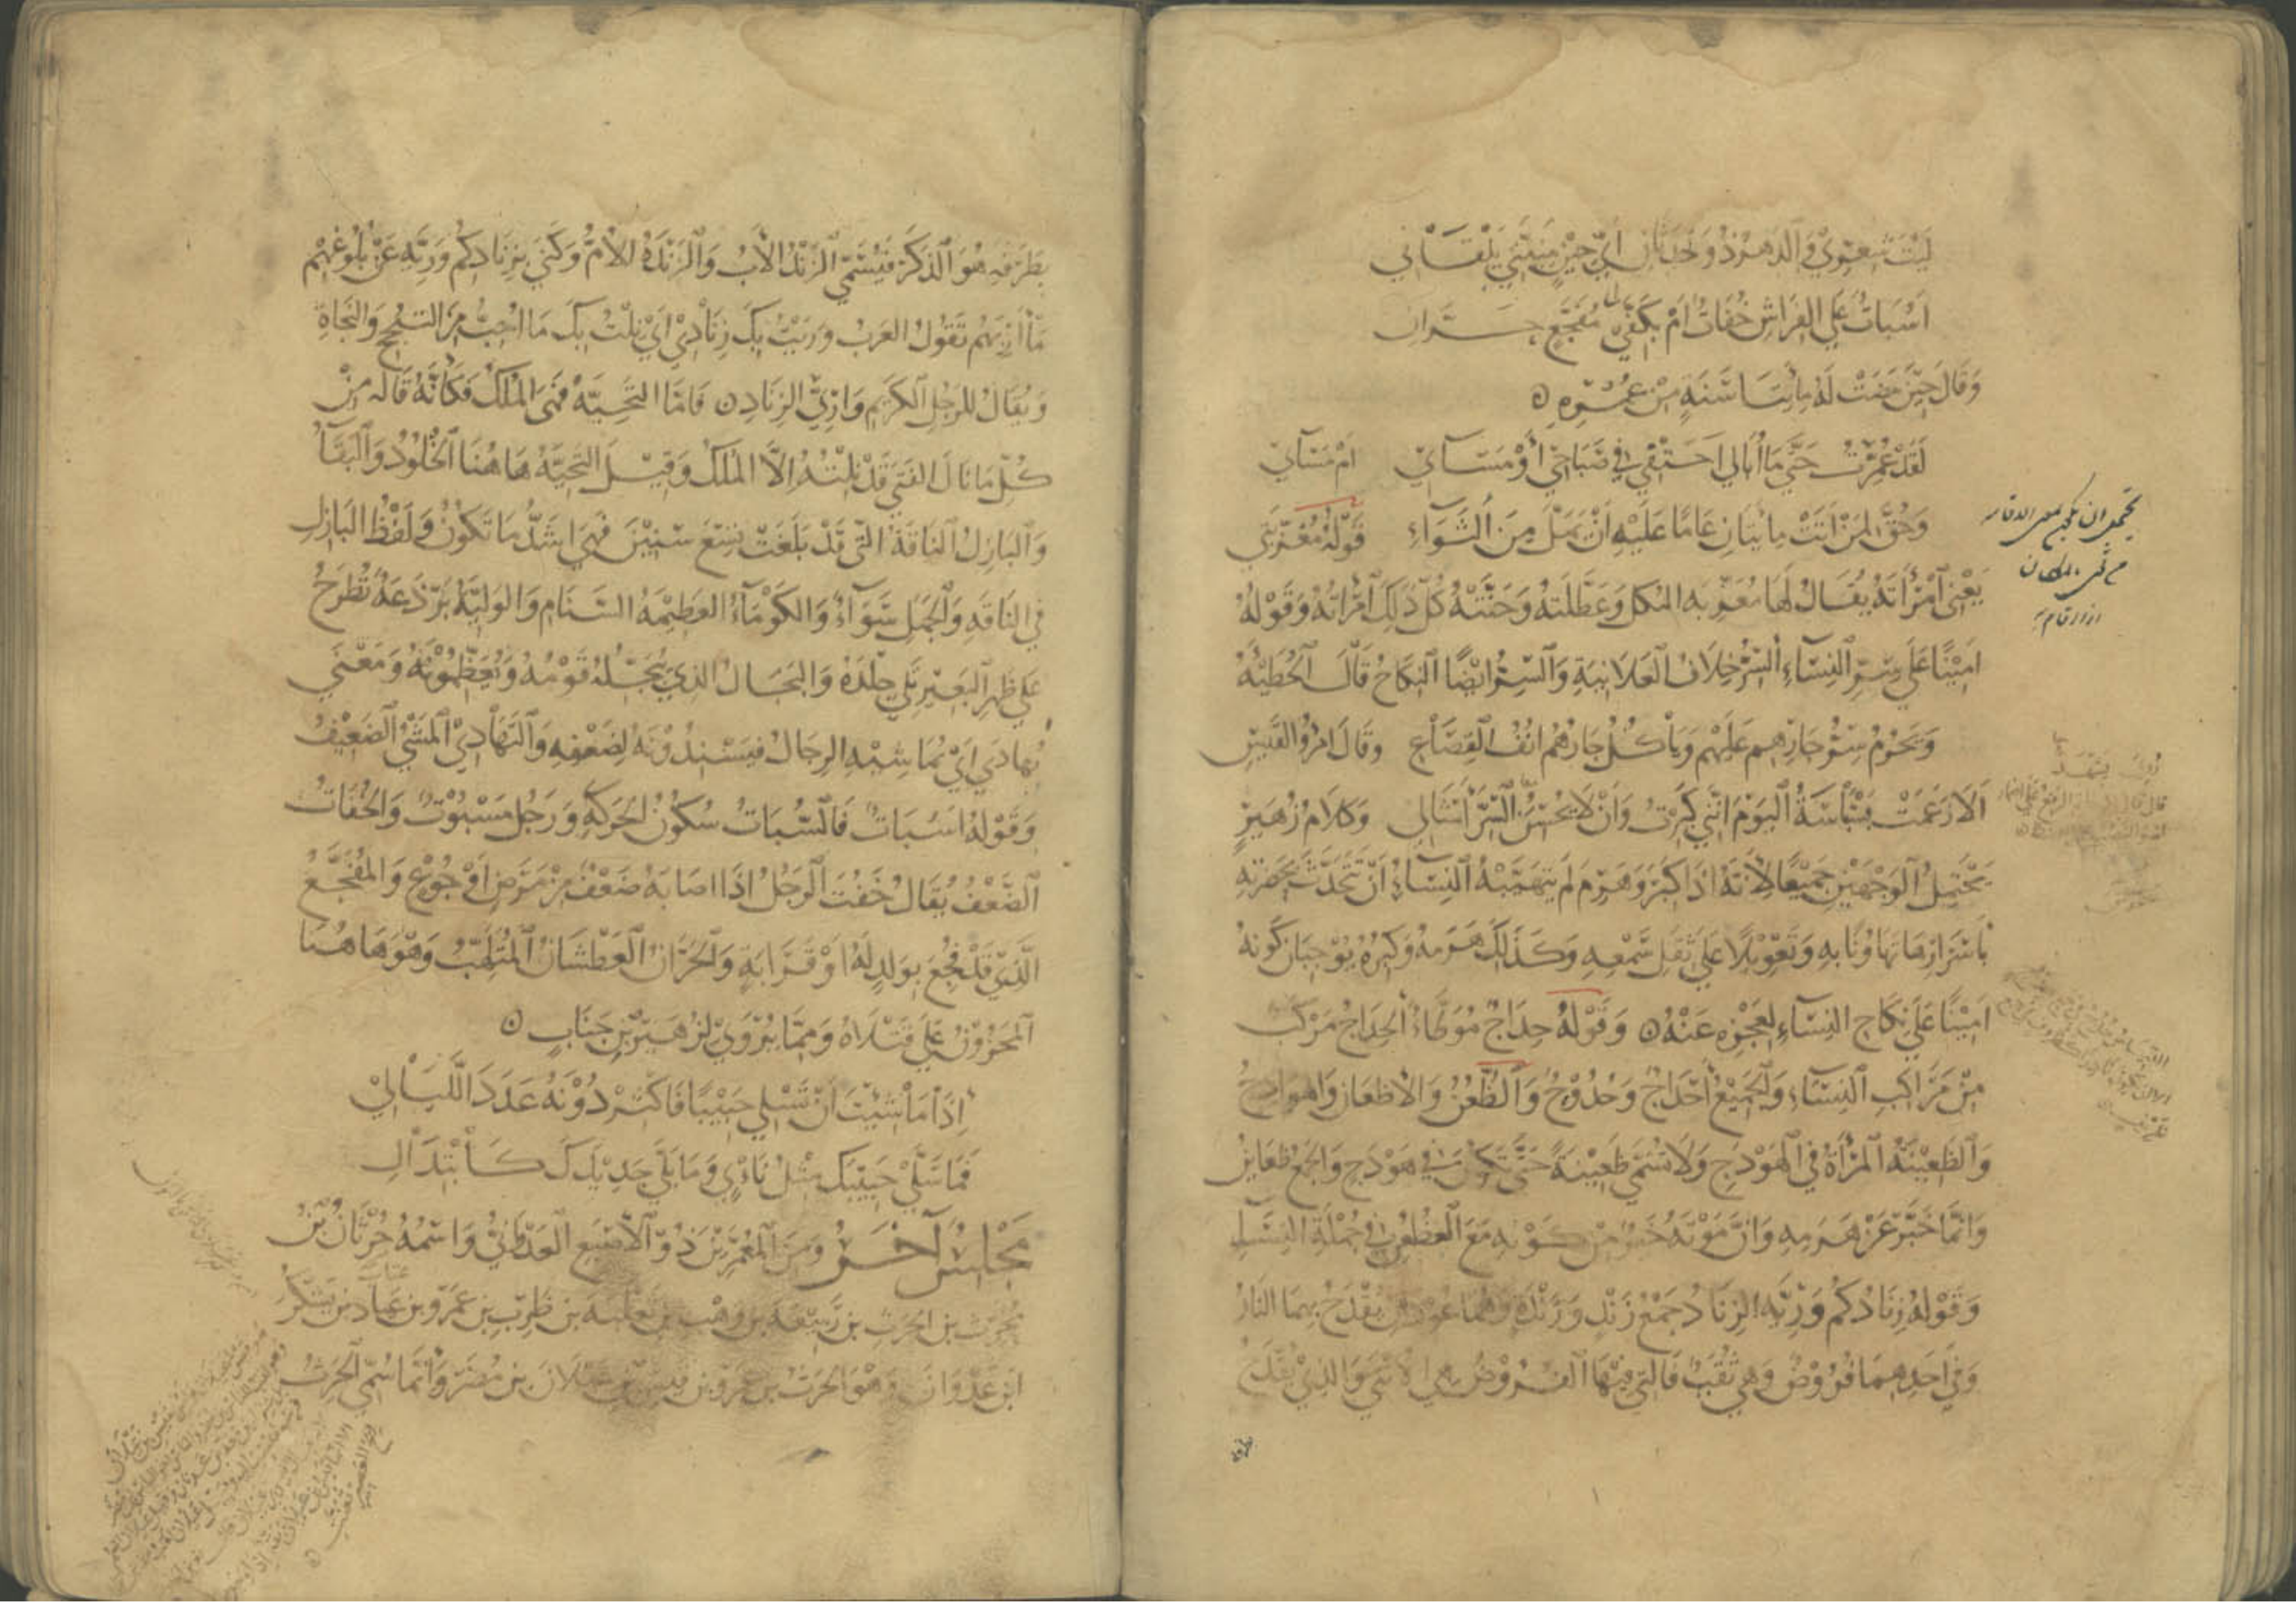 لَيْتَ شِعْرِي وَالدَّهْرُ ذُو حَدَثَانِ أَيَّ حِيْنٍ مَنِيَّتِي تَلْقَانِي
أَسُبَاتٌ عَلَى الفِرَاشِ خُفَاتٌ أَمْ بِكَفَّيْ مُفَجَّعٍ حَرَّانِ
وَقَالَ حِيْنَ مَضَتْ لَهُ مِائَتَا سَنَةٍ مِنْ عُمُرِهِ
لَقَدْ عُمِّرْتُ حَتَّى مَا أُبَالِي أَحَتْفِي فِي صَبَاحِي أَوْ مَسَائِي أَمْ مَسَائِي
وَحُقَّ لِمَنْ أَتَتْ مِائَتَانِ عَامًا عَلَيْهِ أَنْ يَمَلَّ مِنَ الثَّوَاءِ قَوْلُهُ مُعَزِّبَتِي
يَعْنِي امْرَأَتَهُ يُقَالُ لَهَا مُعَزِّبَةُ الرَّجُلِ وَطَلَّتُهُ وَحَنَّتُهُ كُلُّ ذَلِكَ امْرَأَتُهُ وَقَوْلُهُ
أَمِيْنًا عَلَى سِرِّ النِّسَاءِ السِّرُّ خِلَافُ العَلَانِيَةِ وَالسِّرُّ أَيْضًا النِّكَاحُ قَالَ الحُطَيْئَةُ
وَيَحْرُمُ سِرُّ جَارِهِمِ عَلَيْهِمْ وَيَأْكُلُ جَارُهُمْ أُنُفَ القِصَاعِ وَقَالَ امْرُؤُ القَيْسِ
أَلَا زَعَمَتْ بَسْبَاسَةُ اليَوْمَ أَنَّنِي كَبِرْتُ وَأَنْ لَا يُحْسِنُ السِّرَّ أَمْثَالِي وَكَلَامُ زُهَيْرٍ
يَحْتَمِلُ الوَجْهَيْنِ جَمِيْعًا لِأَنَّهُ إِذَا كَبِرَ وَهَرِمَ لَمْ يَتَهَيَّبْهُ النِّسَاءُ أَنْ تَتَحَدَّثَ بِحَضْرَتِهِ
بِأَسْرَارِهَا تَهَاوُنًا بِهِ وَتَعْوِيْلًا عَلَى ثِقَلِ سَمْعِهِ وَكَذَلِكَ هَرَمُهُ وَكِبَرُهُ يُوْجِبَانِ كَوْنَهُ
أَمِيْنًا عَلَى نِكَاحِ النِّسَاءِ لِعَجْزِهِ عَنْهُ وَقَوْلُهُ حِدَاجٌ مُوَطَّاءٌ الحِدَاجُ مَرْكَبٌ
مِنْ مَرَاكِبِ النِّسَاءِ وَالجَمِيْعُ أَحْدَاجٌ وَحُدُوْجٌ وَالظُّعُنُ وَالأَظْعَانُ وَالهَوَادِجُ
وَالظَّعِيْنَةُ المَرْأَةُ فِي الهَوْدَجِ وَلَا تُسَمَّى ظَعِيْنَةً حَتَّى تَكُوْنَ فِي هَوْدَجٍ وَالجَمْعُ ظَعَائِنُ
وَإِنَّمَا خَبَّرَ عَنْ هَرَمِهِ وَأَنَّ مَوْتَهُ خَيْرٌ مِنْ كَوْنِهِ مَعَ الظُّعُنِ فِي جُمْلَةِ النِّسَاءِ
وَقَوْلُهُ زِنَادُكُمْ وَرِيَّهْ الزِّنَادُ جَمْعُ زَنْدٍ وَزَنْدَةٍ وَهُمَا عُوْدَانِ يُقْدَحُ بِهِمَا النَّارُ
وَفِي أَحَدِهِمَا فُرُوْضٌ وَهِيَ ثُقَبٌ فَالَّتِي فِيْهَا الفُرُوْضُ هِيَ الأُنْثَى وَالَّذِي يُقْدَحُ
بِطَرَفِهِ هُوَ الذَّكَرُ فَيُسَمَّى الزَّنْدُ الأَبَ وَالزَّنْدَةُ الأُمَّ وَكَنَى بِزِنَادِكُمْ وَرِيَّهْ عَنْ بُلُوْغِهِمْ
مَآرِبَهُمْ تَقُوْلُ العَرَبُ وَرِيَتْ بِكَ زِنَادِي أَيْ نِلْتُ بِكَ مَا أُحِبُّ مِنَ النُّجْحِ وَالنَّجَاةِ
وَيُقَالُ لِلرَّجُلِ الكَرِيْمِ وَارِي الزِّنَادِ فَأَمَّا التَّحِيَّةُ فَهِيَ المُلْكُ فَكَأَنَّهُ قَالَ مِنْ
كُلِّ مَا نَالَ الفَتَى قَدْ نِلْتُهُ إِلَّا المُلْكَ وَقِيْلَ التَّحِيَّةُ هَاهُنَا الخُلُوْدُ وَالبَقَاءُ
وَالبَازِلُ النَّاقَةُ الَّتِي قَدْ بَلَغَتْ تِسْعَ سِنِيْنَ فَهِيَ أَشَدُّ مَا تَكُوْنُ وَلَفْظُ البَازِلِ
فِي النَّاقَةِ وَالجَمَلِ سَوَاءٌ وَالكَوْمَاءُ العَظِيْمَةُ السَّنَامِ وَالوَلِيَّةُ بَرْذَعَةٌ تُطْرَحُ
عَلَى ظَهْرِ البَعِيْرِ تَلِي جِلْدَهُ وَالبَجَالُ الَّذِي يُبَجِّلُهُ قَوْمُهُ وَيُعَظِّمُوْنَهُ وَمَعْنَى
يُهَادَى أَيْ تُمَاشِيْهِ الرِّجَالُ فَيُسْنِدُوْنَهُ لِضَعْفِهِ وَالتَّهَادِي المَشْيُ الضَّعِيْفُ
وَقَوْلُهُ أَسُبَاتٌ فَالسُّبَاتُ سُكُوْنُ الحَرَكَةِ وَرَجُلٌ مَسْبُوْتٌ وَالخُفَاتُ
الضَّعْفُ يُقَالُ خَفَتَ الرَّجُلُ إِذَا أَصَابَهُ ضَعْفٌ مِنْ مَرَضٍ أَوْ جُوْعٍ وَالمُفَجَّعُ
الَّذِي قَدْ فُجِعَ بِوَلَدٍ لَهُ أَوْ قَرَابَةٍ وَالحَرَّانُ العَطْشَانُ المُلْتَهِبُ وَهُوَ هَاهُنَا
المَحْزُوْنُ عَلَى قَتْلَاهُ وَمِمَّا يُرْوَى لِزُهَيْرِ بْنِ جَنَابٍ
إِذَا مَا شِئْتَ أَنْ تَسْلَى حَبِيْبًا فَأَكْثِرْ دُوْنَهُ عَدَدَ اللَّيَالِي
فَمَا سَلَّى حَبِيْبَكَ مِثْلُ نَأْيٍ وَمَا بَلَّى جَدِيْدَكَ كَابْتِذَالِ
مَجْلِسٌ آخَرُ وَمِنَ المُعَمَّرِيْنَ ذُو الأُصْبُعِ العَدْوَانِيُّ وَاسْمُهُ حُرْثَانُ بْنُ
مُحَرِّثِ بْنِ الحَرِثِ بْنِ رَبِيْعَةَ بْنِ وَهْبِ بْنِ ثَعْلَبَةَ بْنِ ظَرِبِ بْنِ عَمْرِو بْنِ عَبَّادِ بْنِ يَشْكُرَ
ابْنِ عَدْوَانَ وَهُوَ الحَرِثُ بْنُ عَمْرِو بْنِ قَيْسِ بْنِ عَيْلَانَ بْنِ مُضَرَ وَإِنَّمَا سُمِّيَ الحَرِثُ